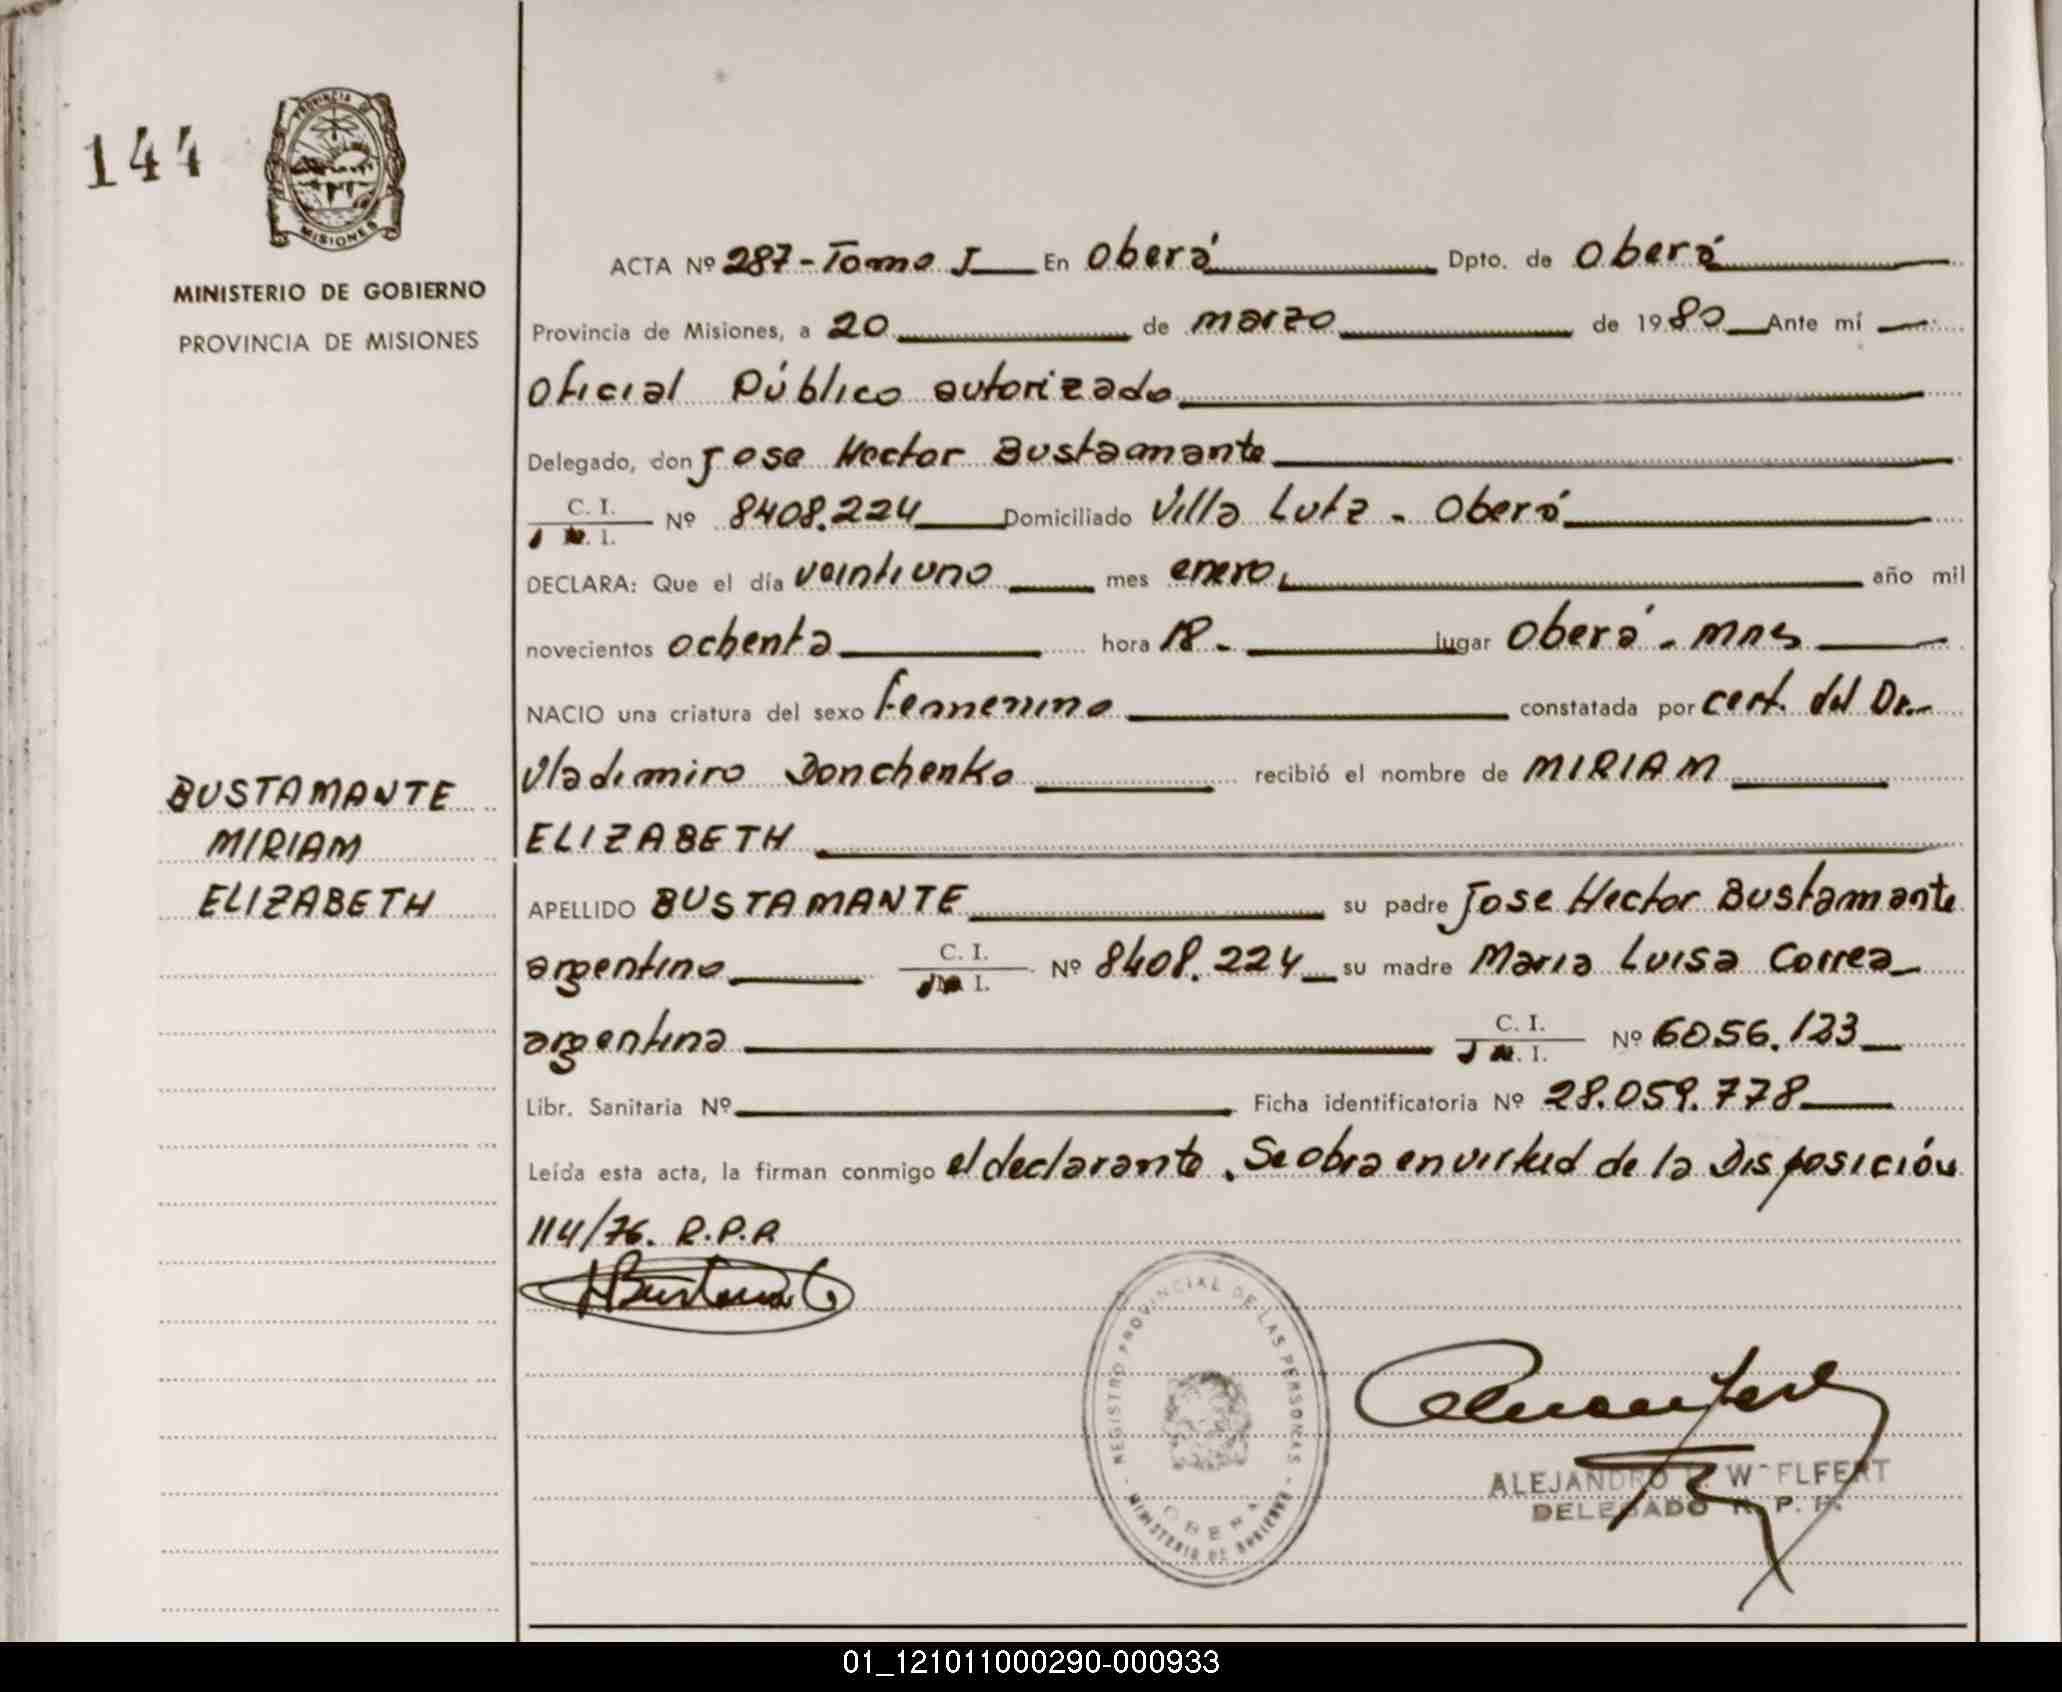 144
PROVINCIA DE
MISIONES
MINISTERIO DE GOBIERNO
PROVINCIA DE MISIONES
ACTA Nº 287 - Tomo I En Oberá Dpto. de Oberá
Provincia de Misiones, a 20 de marzo de 1980 Ante mí
Oficial Público autorizado
Delegado, don Jose Hector Bustamante
C. I.
Nº 8408.224 Domiciliado Villa Lutz - Oberá
I.
DECLARA: Que el día veintiuno mes enero, año mil
novecientos ochenta hora 18.- lugar Oberá - mns
NACIO una criatura del sexo femenino constatada por cert. del Dr.
Vladimiro Donchenko recibió el nombre de MIRIAM
ELIZABETH
BUSTAMANTE
MIRIAM
ELIZABETH
APELLIDO BUSTAMANTE su padre Jose Hector Bustamante
argentino C. I. Nº 8408.224 su madre Maria Luisa Correa
I.
argentina C. I. Nº 6056.123
I.
Libr. Sanitaria Nº Ficha identificatoria Nº 28.059.778
Leída esta acta, la firman conmigo el declarante. Se obra en virtud de la Disposición
114/76. R.P.P.
HBustamante
REGISTRO PROVINCIAL DE LAS PERSONAS
OBERA
MINISTERIO DE GOBIERNO
ALEJANDRO
DELEGADO R. P. P.
01_121011000290-000933